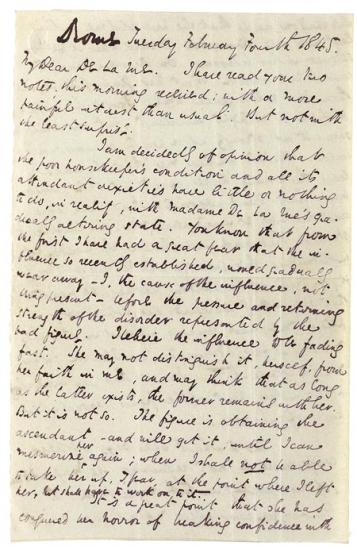 Rome Tuesday February Fourth 1845.
My Dear De La Rue. I have read your two
notes, this morning received; with a more
painful interest than usual. But not with
the least surprise.
I am decidedly of opinion that
the poor housekeeper's condition and all its
attendant anxieties have little or nothing
to do, in reality, with Madame De La Rue's gra-
dually altering state. You know that from
the first I have had a great fear that the in-
fluence so recently established, would gradually
wear away - I, the cause of the influence, not
being present - before the pressure and returning
strength of the disorder represented by the
bad figure. I believe the influence to be fading
fast. She may not distinguish it, herself, from
her faith in me, and may think that as long
as the latter exists, the former remains with her.
But it is not so. The figure is obtaining the
ascendant - and will get it, until I can
mesmerize her again; when I shall not be able
to take her up, I fear, at the point where I left
her, but shall have to work on to it.
It is a great point that she has
conquered her horror of breaking confidence with